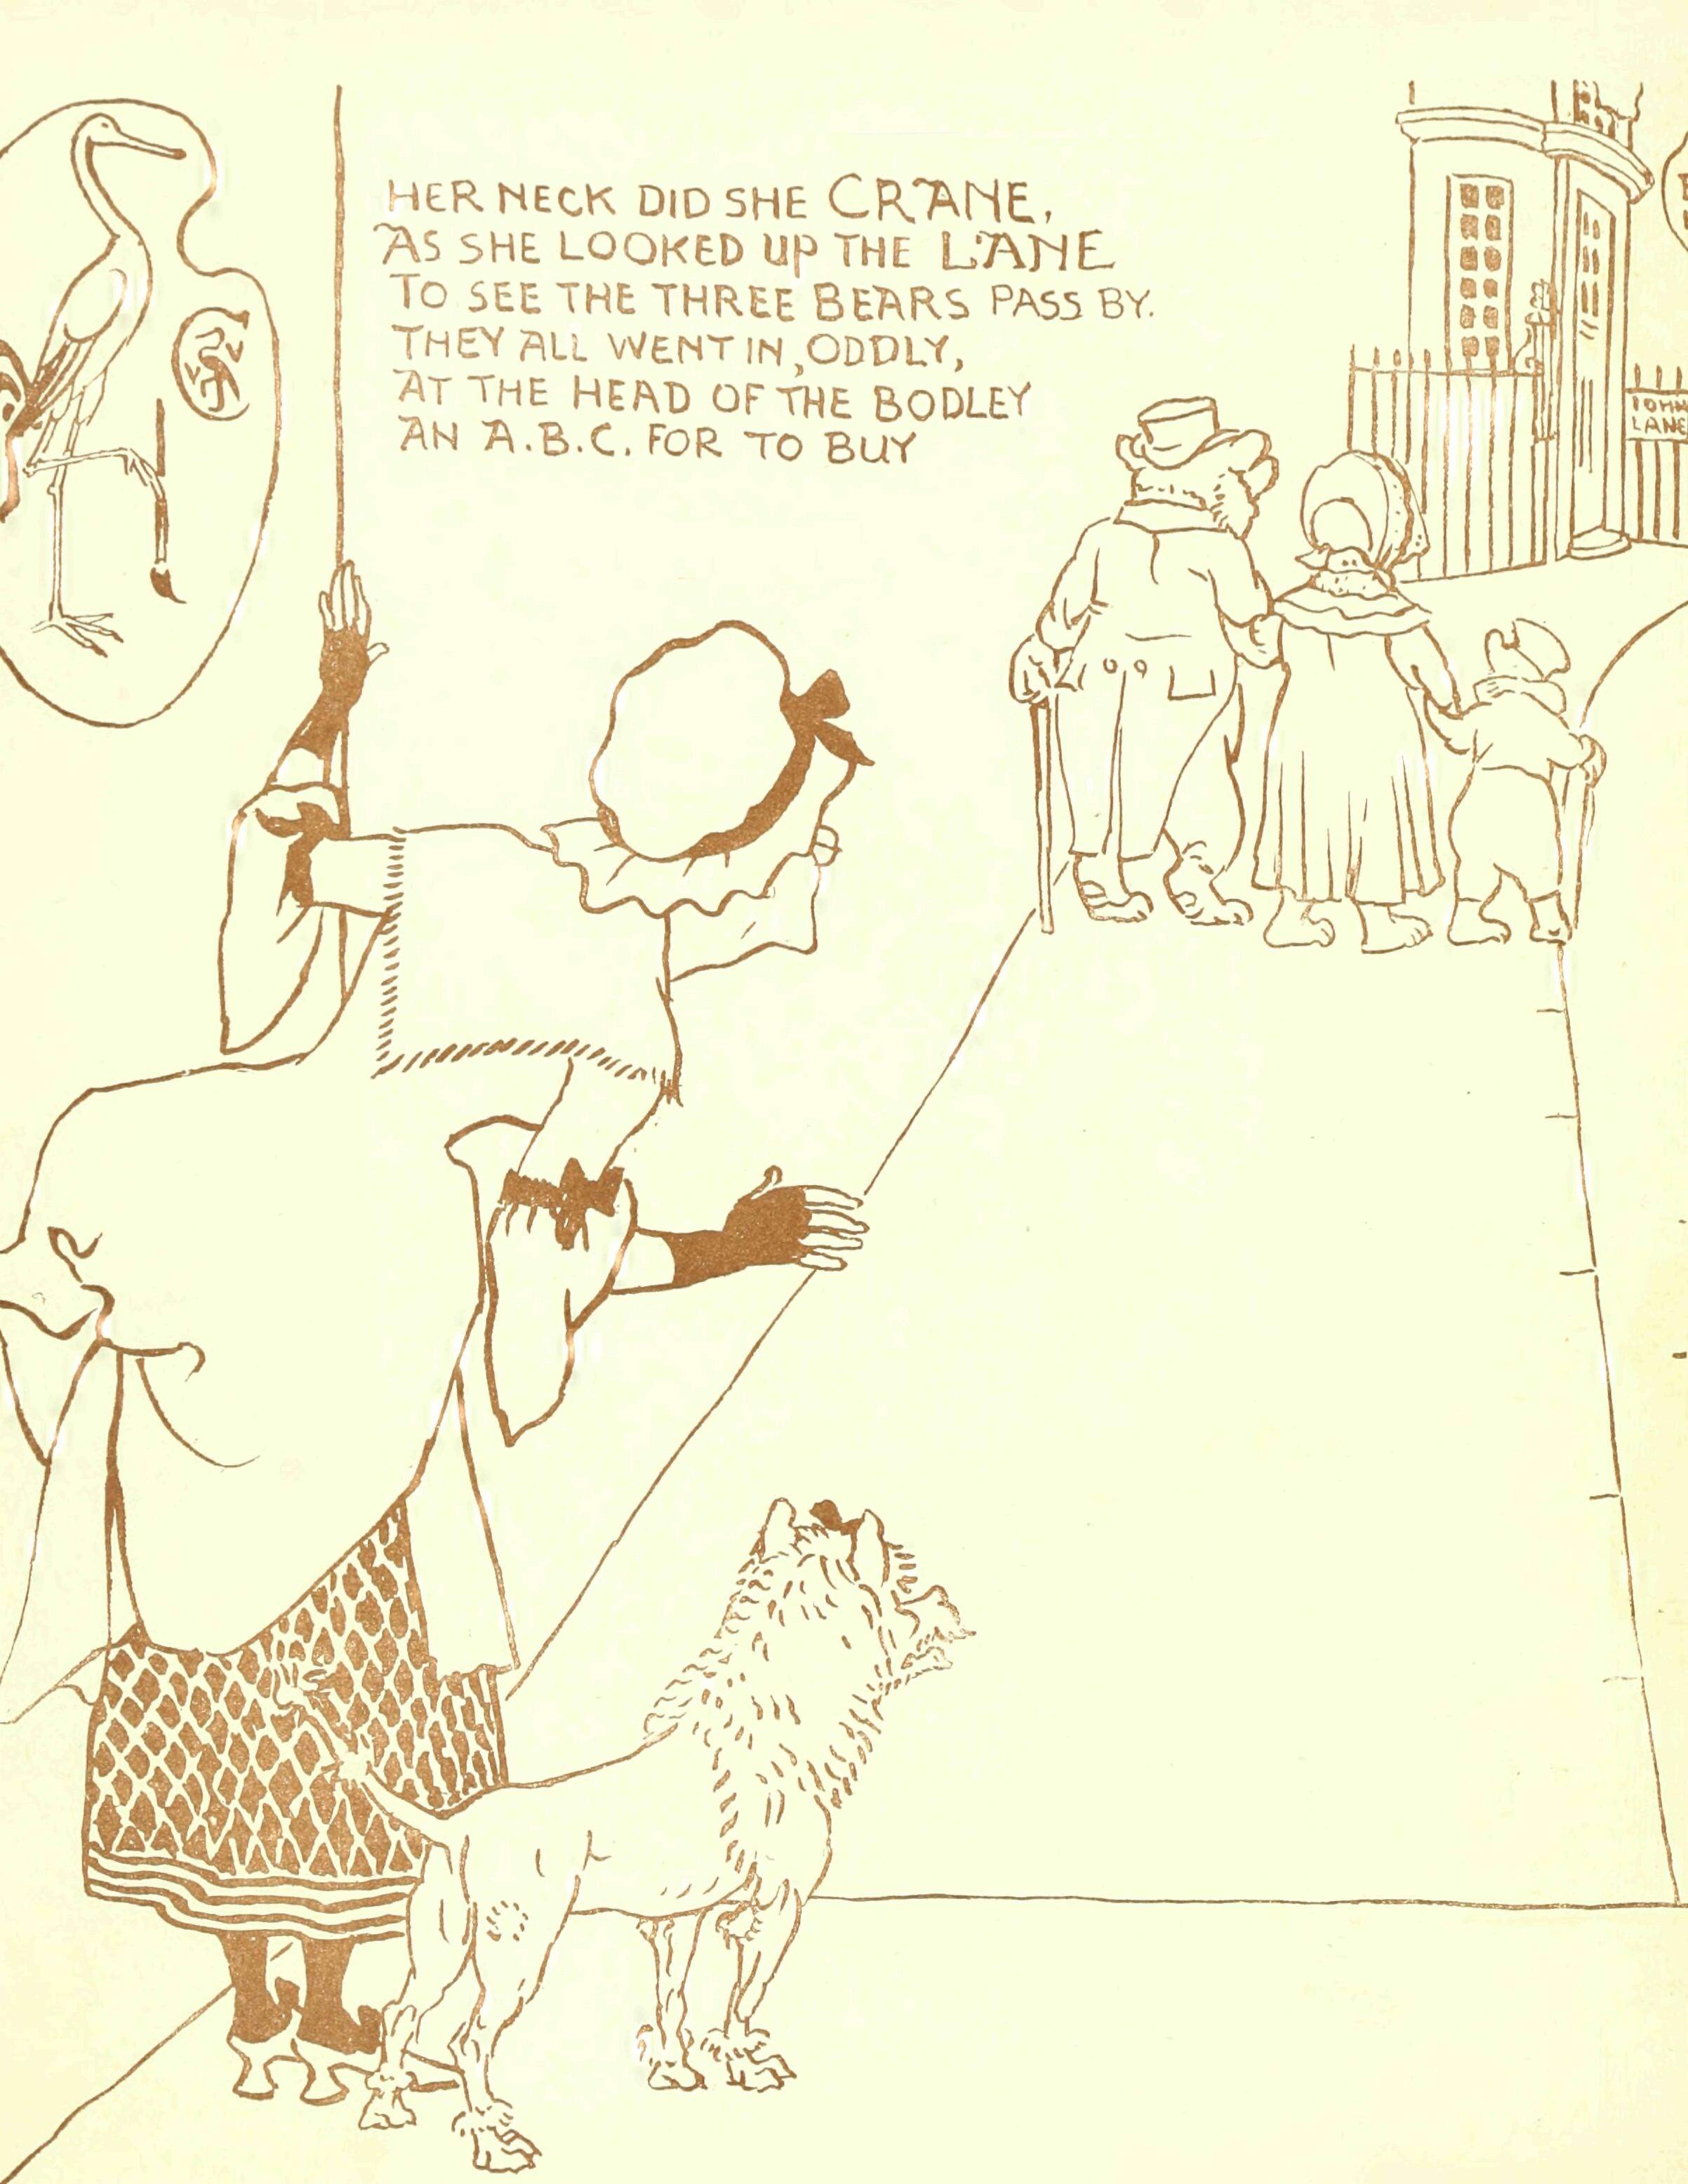 HER NECK DID SHE CRANE,
AS SHE LOOKED UP THE LANE
TO SEE THE THREE BEARS PASS BY.
THEY ALL WENT IN, ODDLY,
AT THE HEAD OF THE BODLEY
AN A.B.C. FOR TO BUY
IOHN
LANE